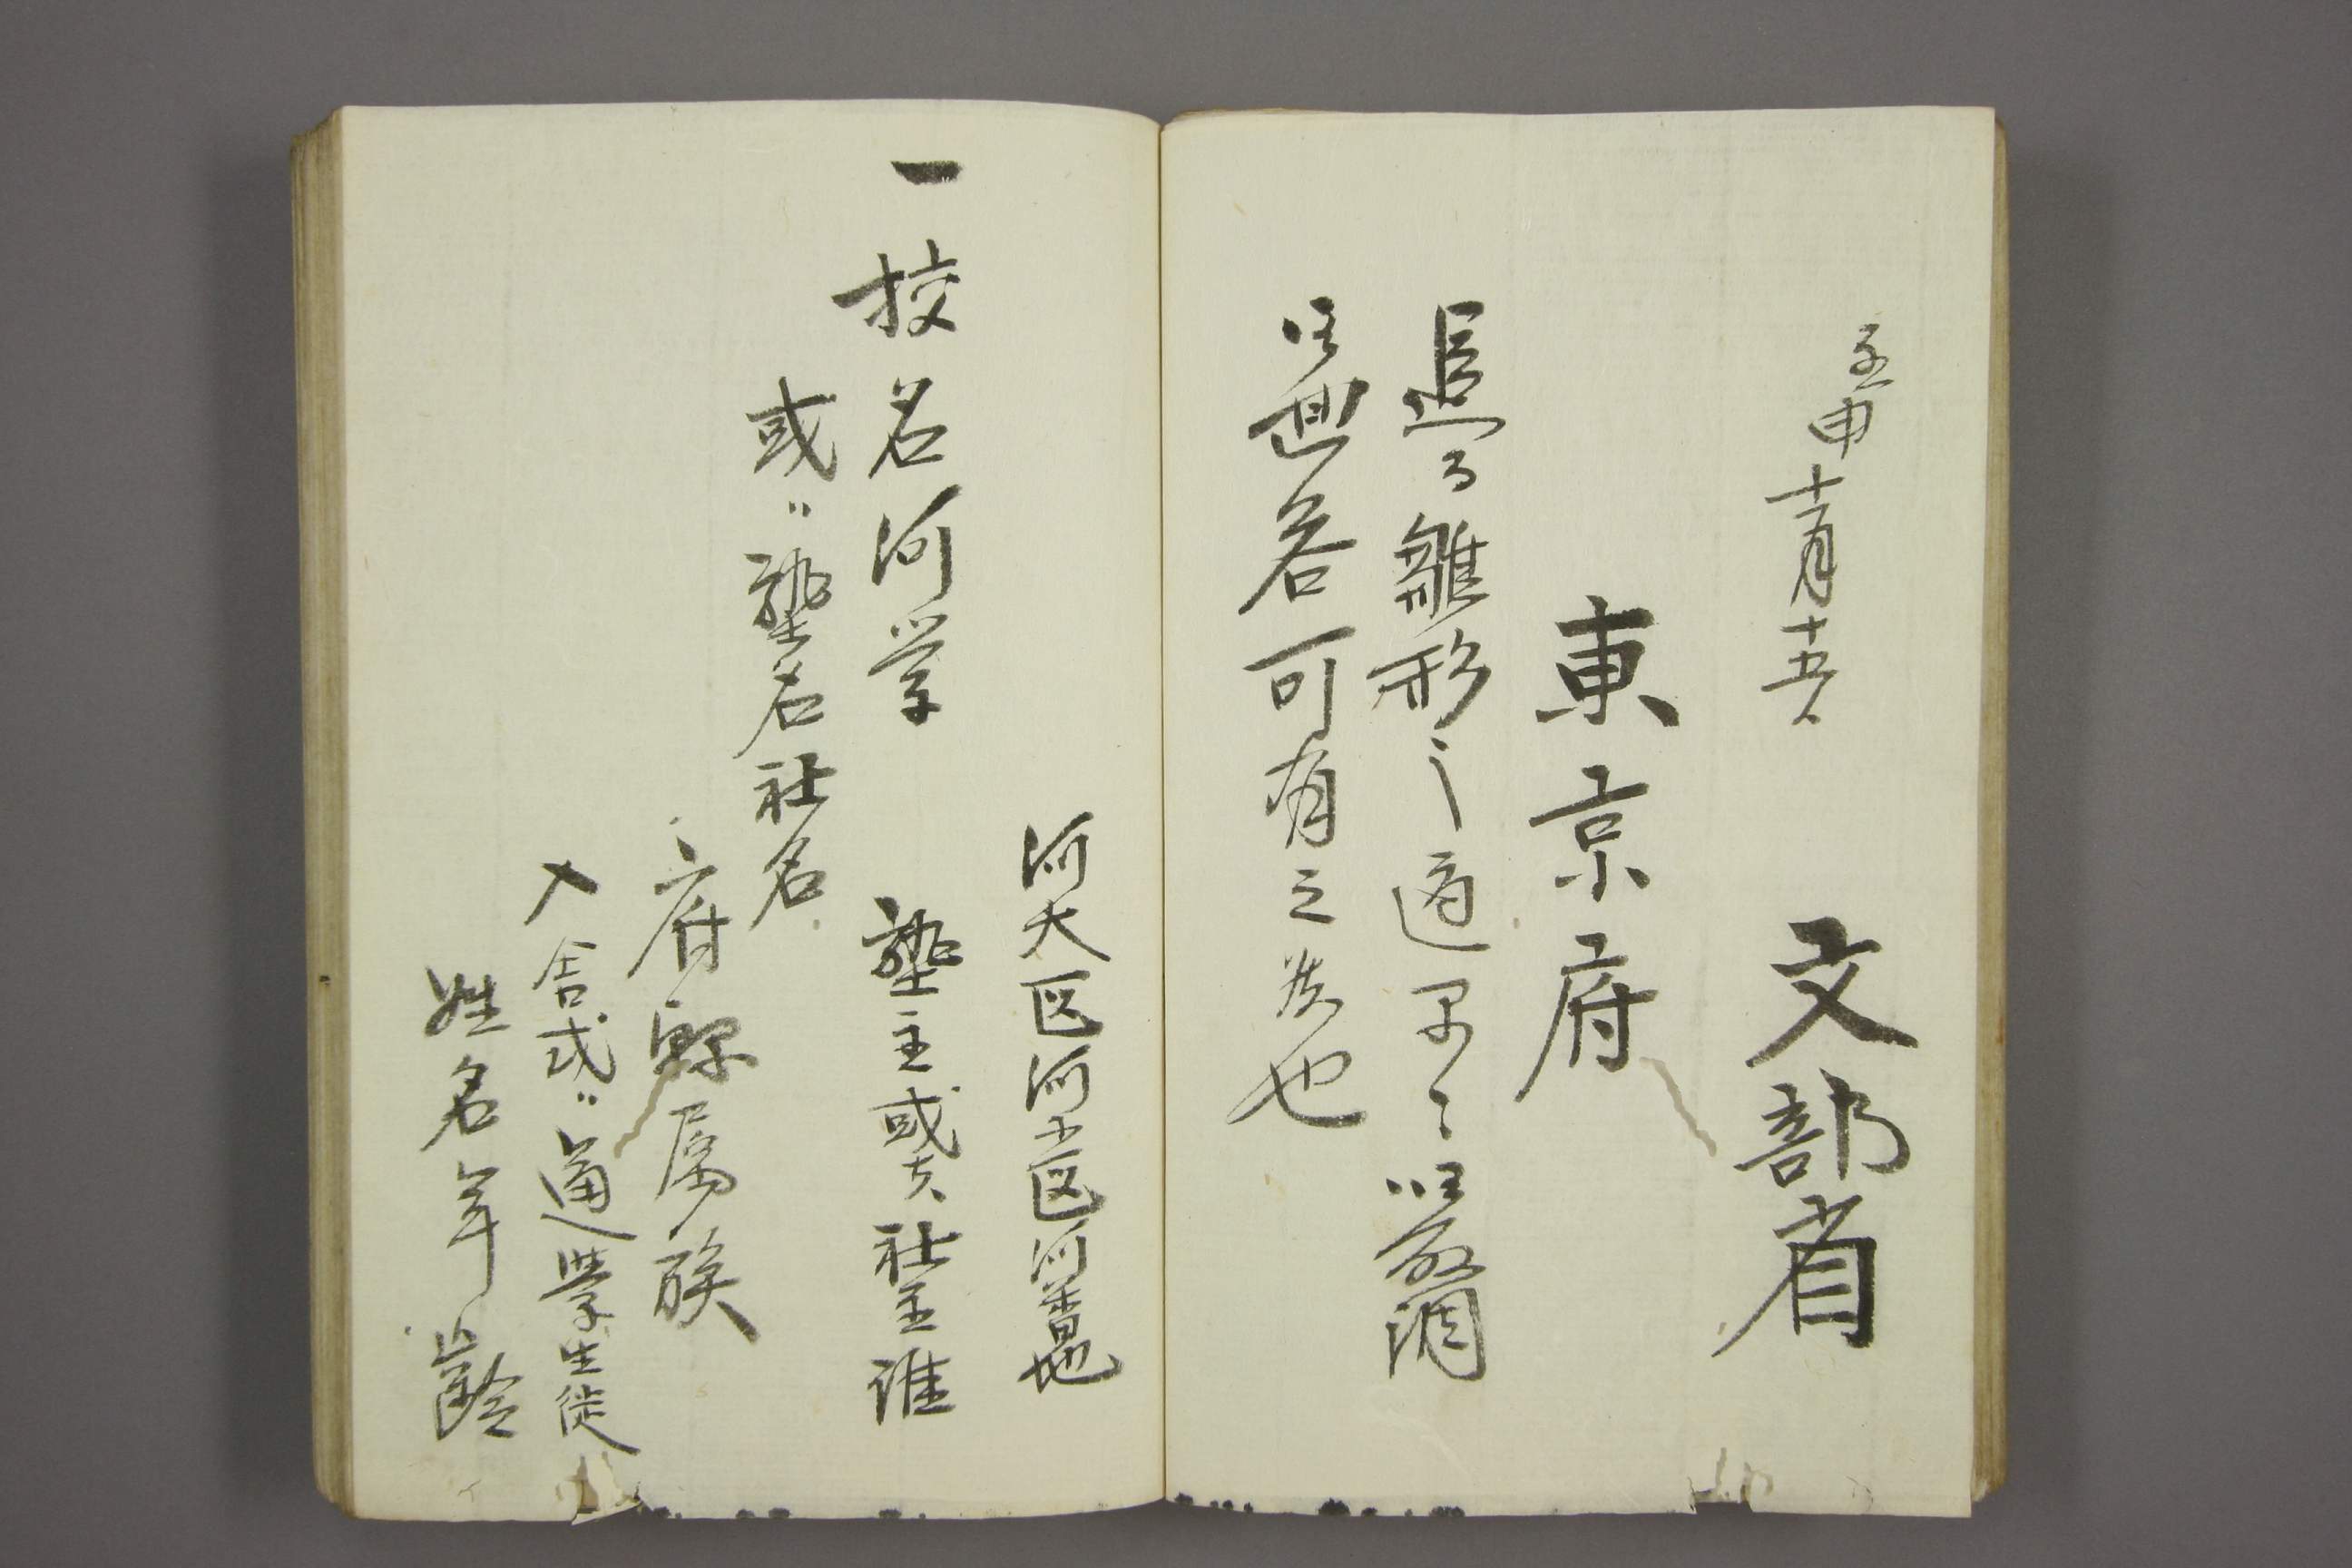 壬申十一月十五日
文部省
東京府
追而雛形之通早々取調
無答可有之候也
何大区何小区何番地
一校名何学　塾主或ハ社主誰
或ハ塾名社名
府縣属族
入舎或ハ通學生徒
姓名年齢